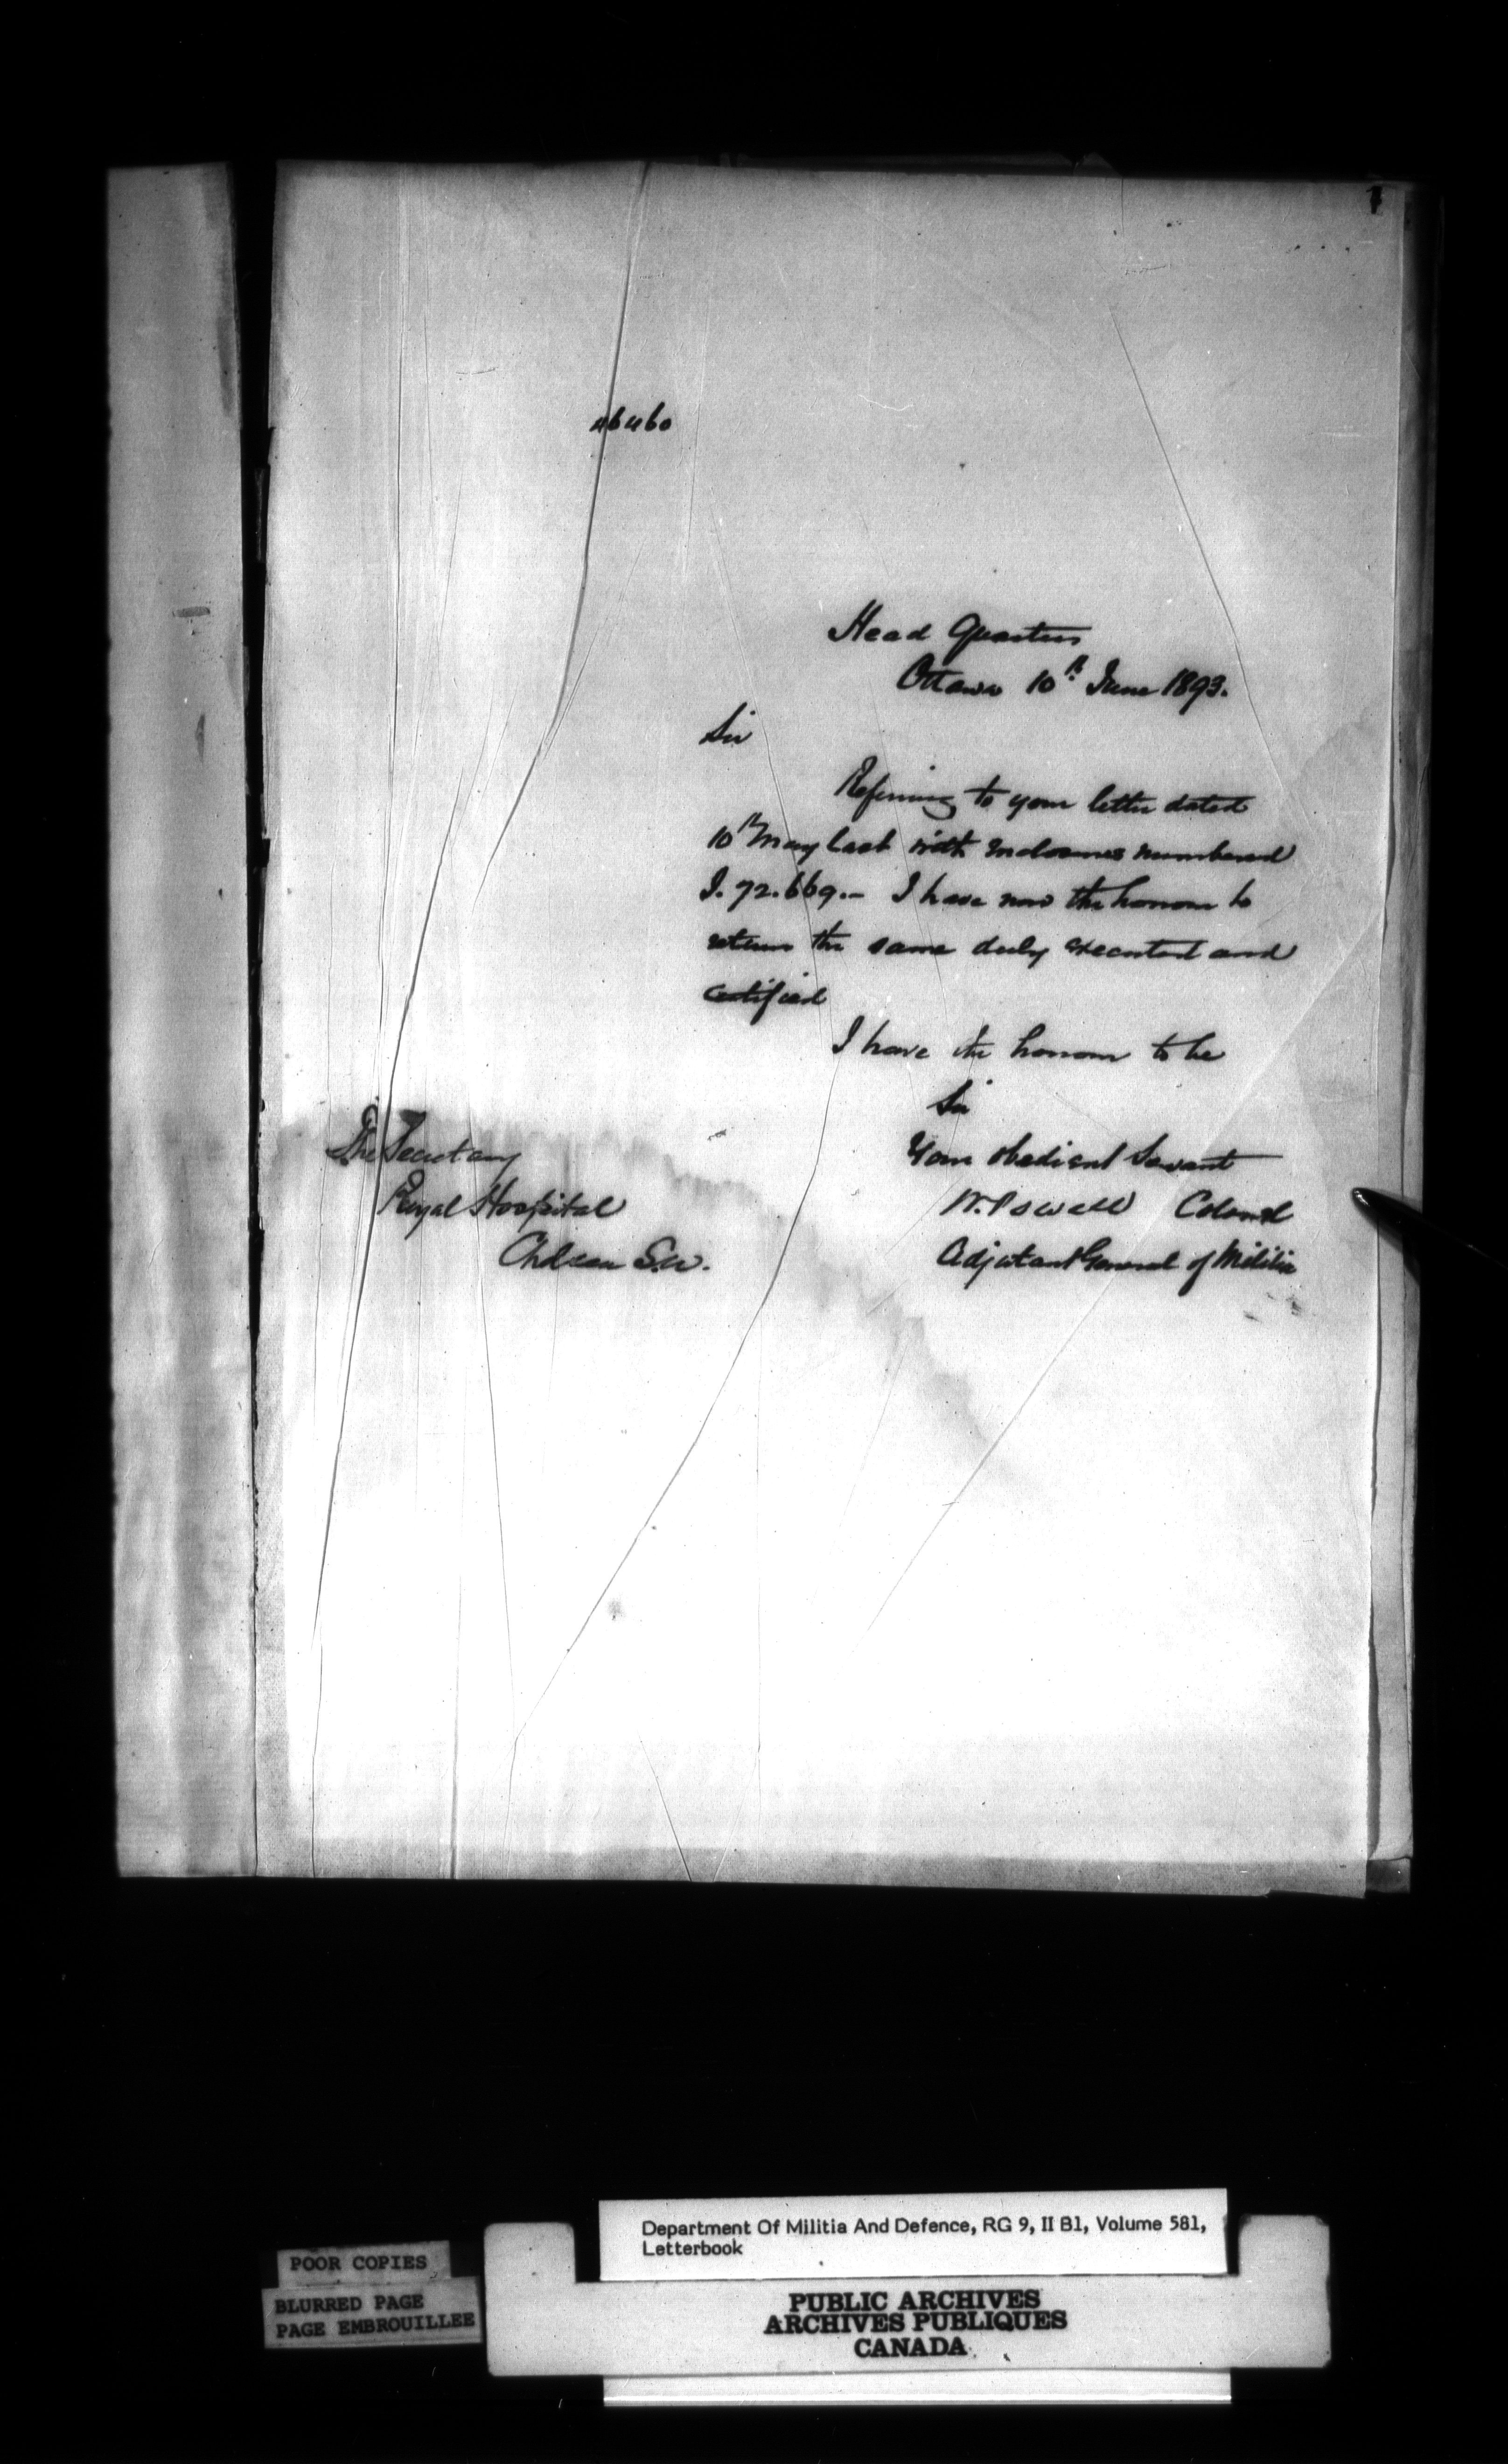 1
46460
Head Quarters
Ottawa 10th June 1893.
Sir
Referring to your letter dated
10th May last with inclosures numbered
I. 72.669.- I have now the honour to
return the same duly executed and
certified
I have the honour to be
Sir
Your obedient Servant
W. Powell Colonel
Adjutant General of Militia
The Secretary
Royal Hospital
Chelsea S.W.
Department Of Militia And Defence, RG 9, II B1, Volume 581,
Letterbook
POOR COPIES
BLURRED PAGE
PAGE EMBROUILLEE
PUBLIC ARCHIVES
ARCHIVES PUBLIQUES
CANADA